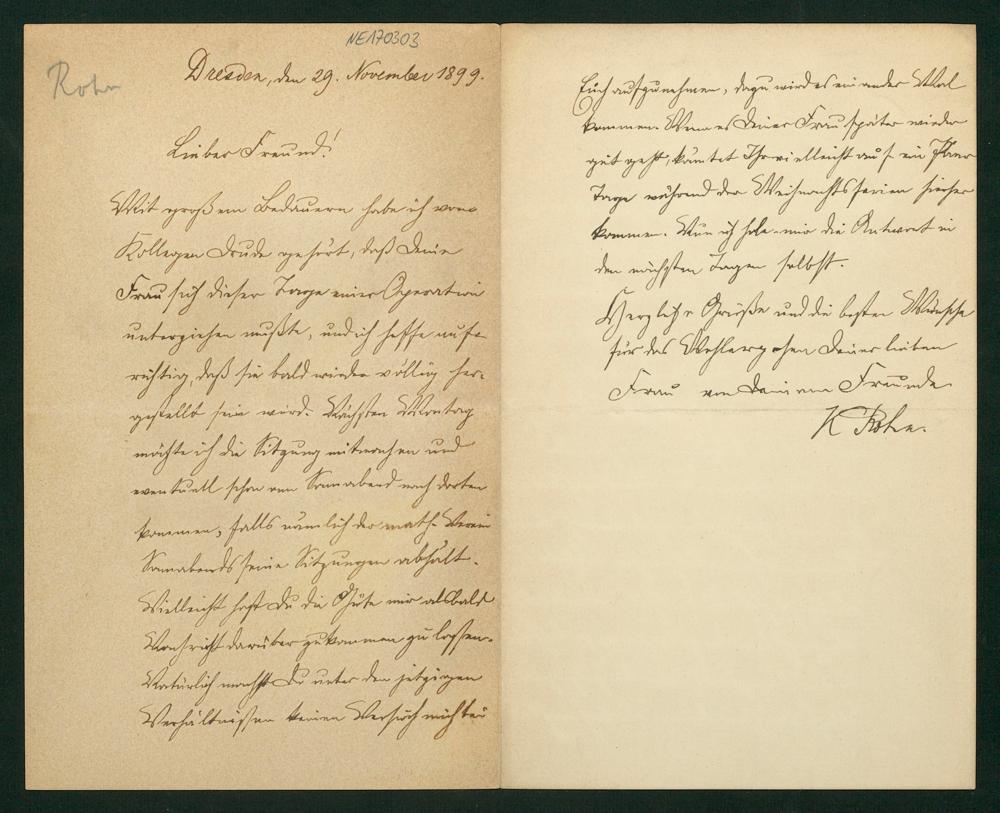 NE170303
Rohn
Dresden, den 29. November 1899.
Lieber Freund!
Mit großem Bedauern habe ich vom
Kollegen Drude gehört, daß Deine
Frau sich dieser Tage einer Operation
unterziehen mußte, und ich hoffe auf-
richtig, daß sie bald wieder völlig her-
gestellt sein wird. Nächsten Montag
möchte ich die Sitzung mitmachen und
eventuell schon am Sonnabend nach dorten
kommen, falls nämlich der math. Verein
Sonnabends seine Sitzungen abhält.
Vielleicht hast Du die Güte mir alsbald
Nachricht darüber zukommen zu lassen.
Natürlich machst Du unter den jetzigen
Verhältnissen keinen Versuch mich bei
Euch aufzunehmen, dazu wird es ein ander Mal
kommen. Wenn es Deiner Frau später wieder
gut geht, könntet Ihr vielleicht auf ein Paar
Tage während der Weihnachtsferien hierher
kommen. Nun ich hole mir die Antwort in
den nächsten Tagen selbst.
Herzliche Grüße und die besten Wünsche
für das Wohlergehen Deiner lieben
Frau von Deinem Freunde
K Rohn.